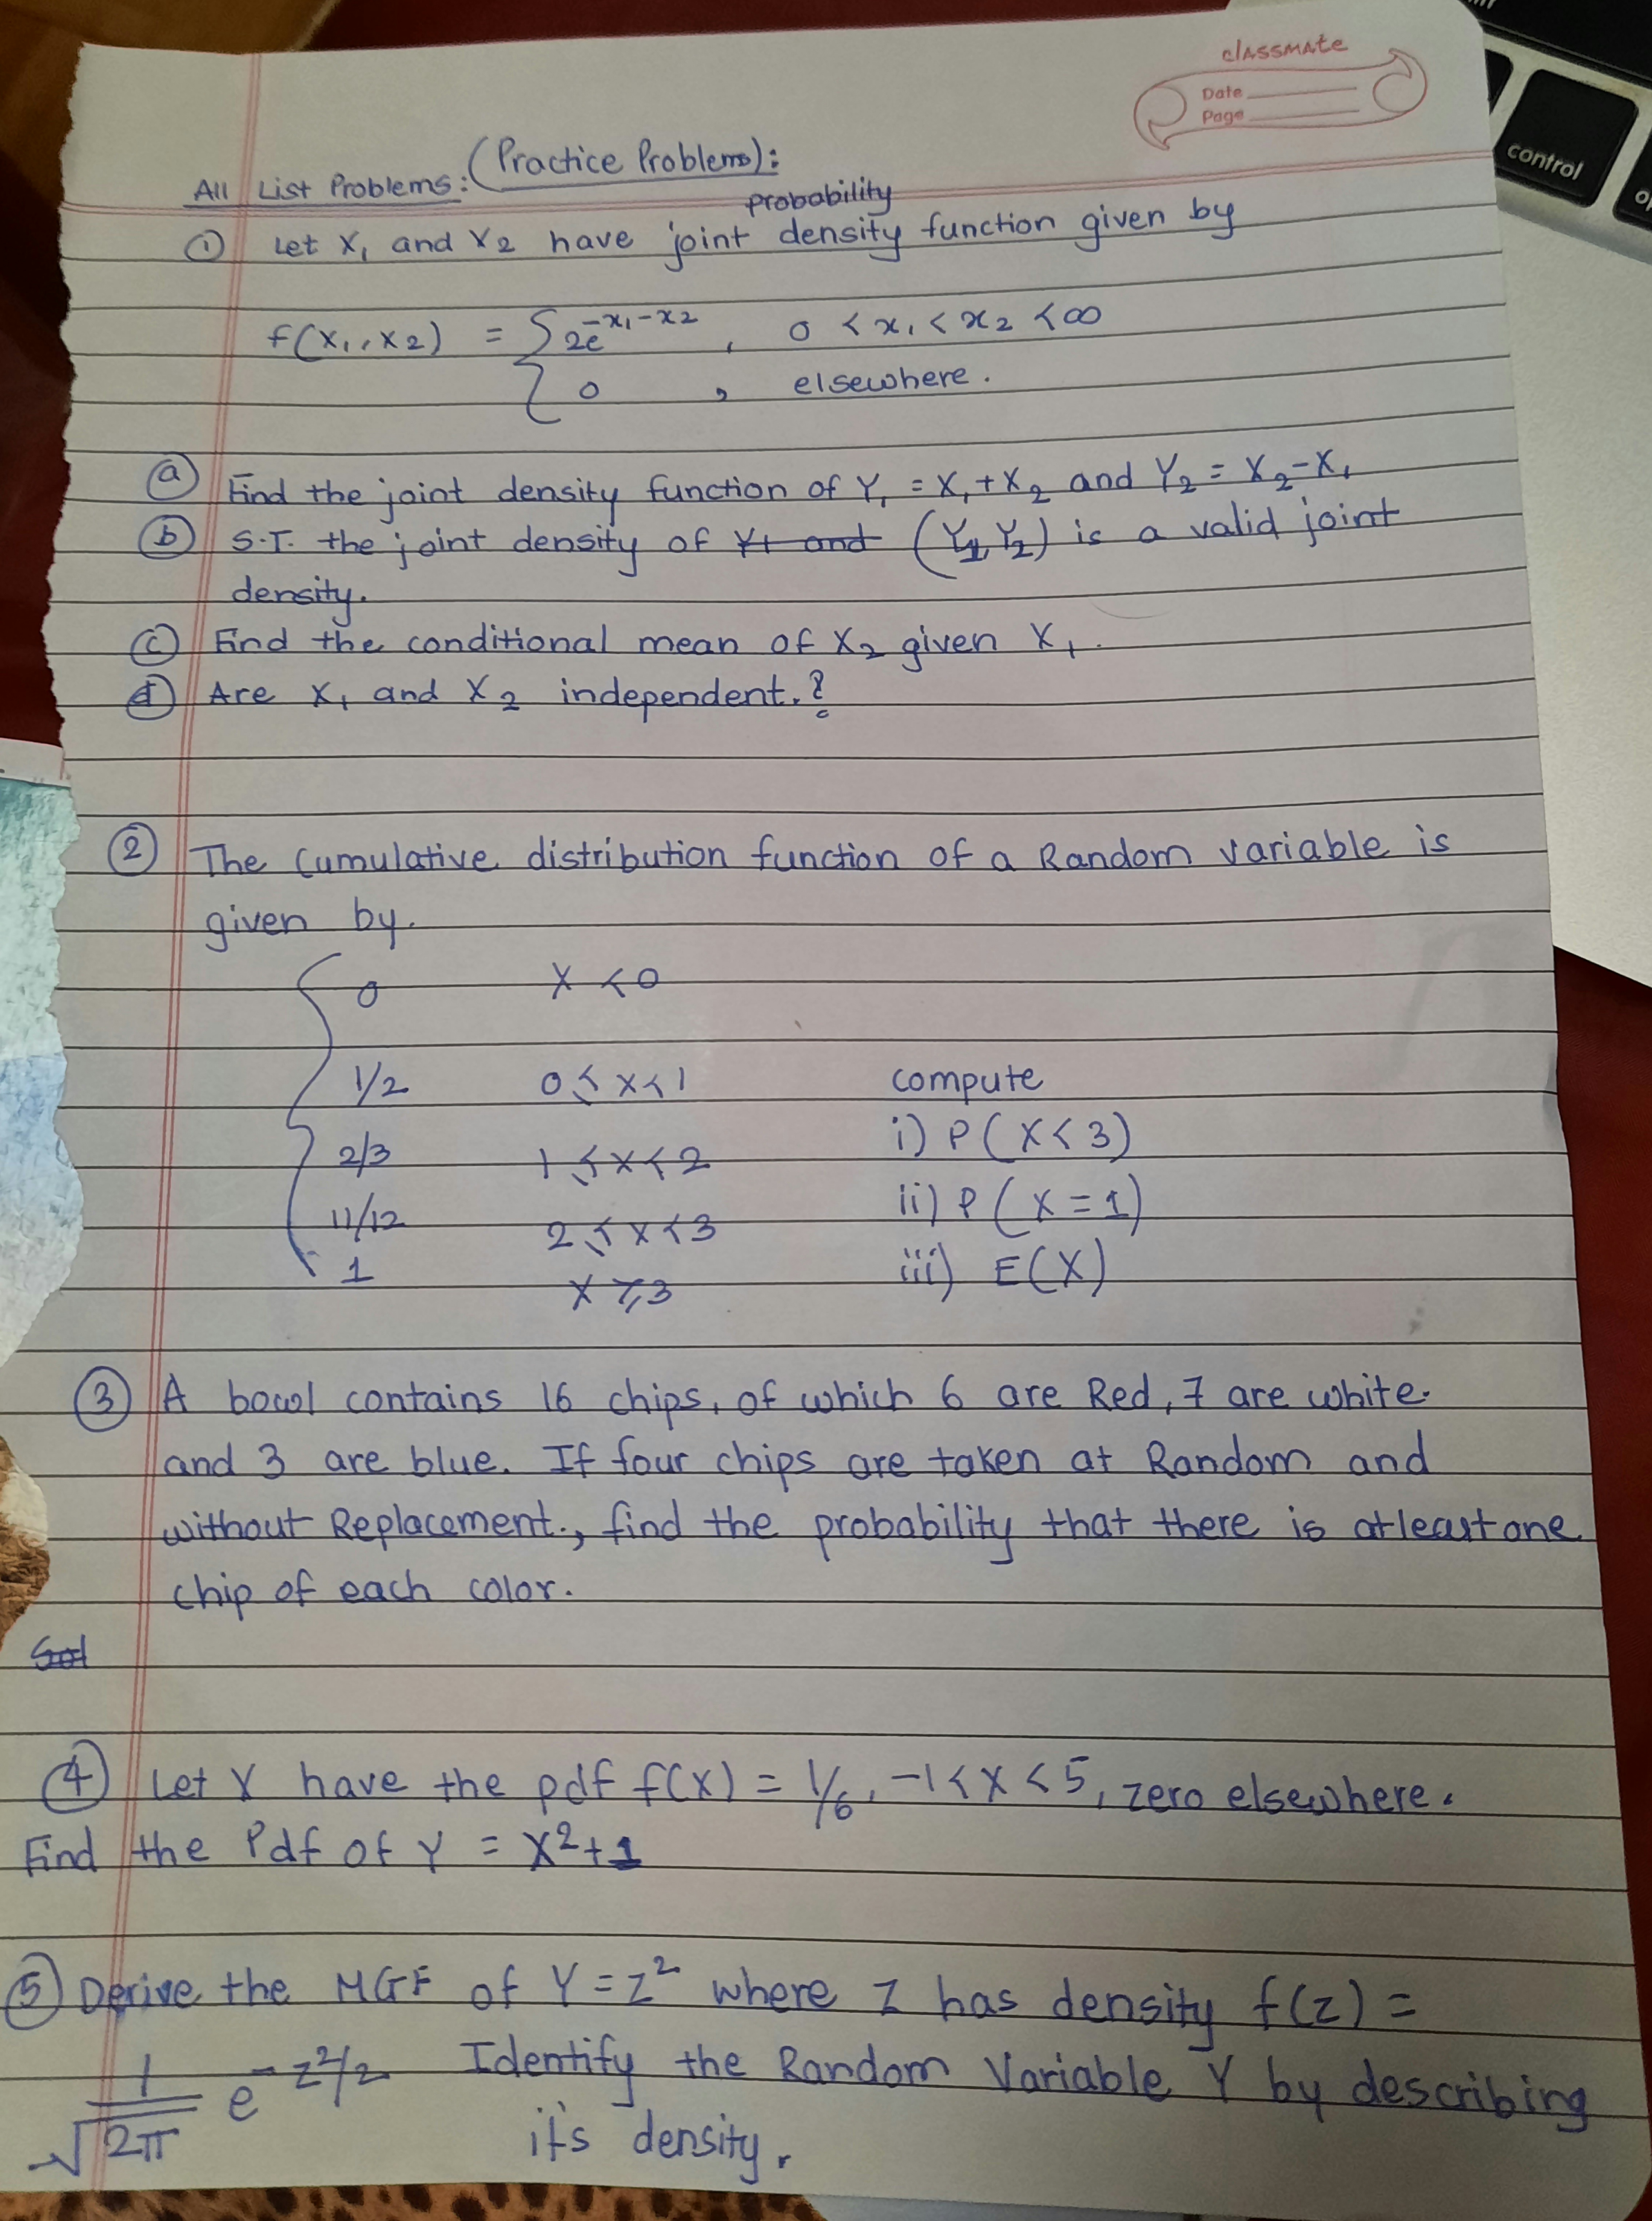 classmate
Date
Page
control
All List Problems: (Practice Problems):
probability
① Let X₁ and X₂ have joint density function given by
f(x₁,x₂) = { 2e^{-x₁-x₂} , 0 < x₁ < x₂ < ∞
0 , elsewhere.
ⓐ Find the joint density function of Y₁ = X₁+X₂ and Y₂ = X₂-X₁
ⓑ S.T. the joint density of Y1 and (Y₁,Y₂) is a valid joint
density.
ⓒ Find the conditional mean of X₂ given X₁.
ⓓ Are X₁ and X₂ independent.?
② The Cumulative distribution function of a Random variable is
given by.
0 X < 0
1/2 0 ≤ x < 1 compute
2/3 1 ≤ x < 2 i) P(X < 3)
11/12 2 ≤ x < 3 ii) P(X = 1)
1 x ≥ 3 iii) E(X)
③ A bowl contains 16 chips, of which 6 are Red, 7 are white
and 3 are blue. If four chips are taken at Random and
without Replacement., find the probability that there is atleast one
chip of each color.
Sol
④ Let X have the pdf f(x) = 1/6, -1 < x < 5, zero elsewhere.
Find the Pdf of Y = X²+1
⑤ Derive the MGF of Y = Z² where Z has density f(z) =
1/√2π e^{-z²/2} Identify the Random Variable Y by describing
it's density.